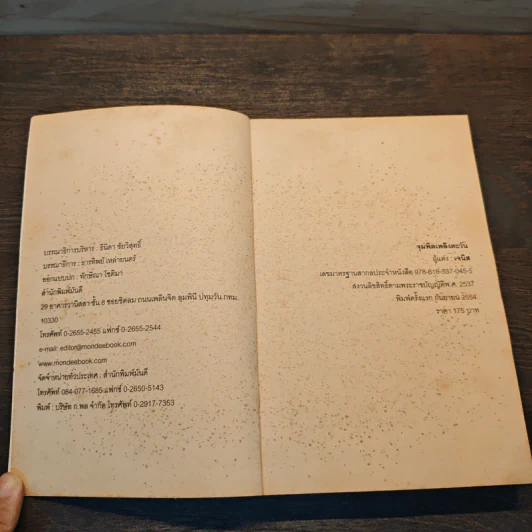 บรรณาธิการบริหาร : ธีนิดา ชัยวิสุทธิ์
บรรณาธิการ : ธารทิพย์ เหล่ายนตร์
ออกแบบปก : ทักษิณา โชติมา
สำนักพิมพ์มันดี
29 อาคารวานิสสา ชั้น 8 ซอยชิดลม ถนนเพลินจิต ลุมพินี ปทุมวัน กทม.
10330
โทรศัพท์ 0-2655-2455 แฟกซ์ 0-2655-2544
e-mail: editor@mondeebook.com
www.mondeebook.com
จัดจำหน่ายทั่วประเทศ : สำนักพิมพ์มันดี
โทรศัพท์ 084-077-1685 แฟกซ์ 0-2650-5143
พิมพ์ : บริษัท ก.พล จำกัด โทรศัพท์ 0-2917-7353
จุมพิตเพลิงตะวัน
ผู้แต่ง : เจนิส
เลขมาตรฐานสากลประจำหนังสือ 978-616-537-045-5
สงวนลิขสิทธิ์ตามพระราชบัญญัติพ.ศ. 2537
พิมพ์ครั้งแรก กันยายน 2554
ราคา 175 บาท